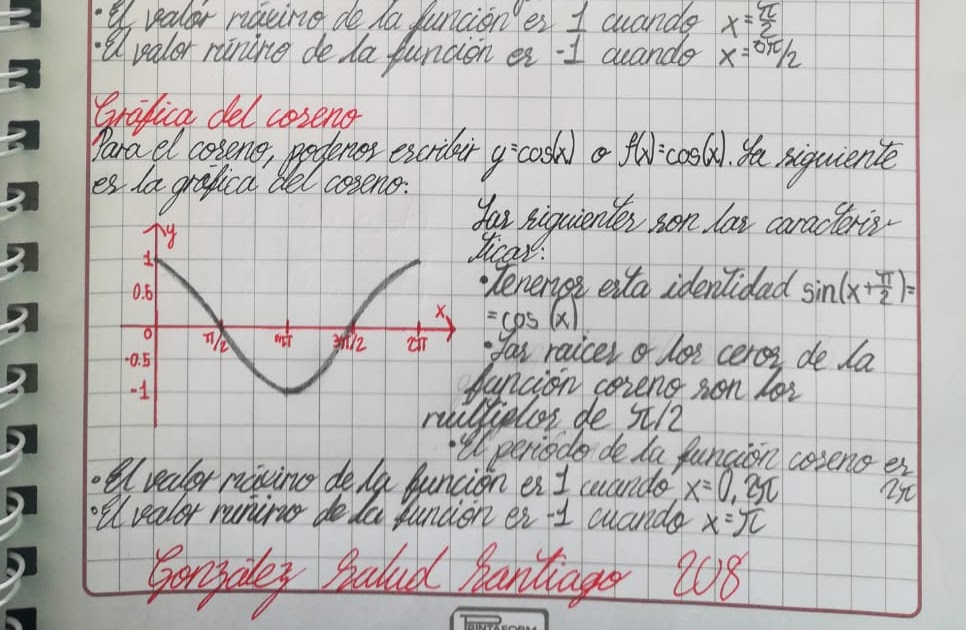 • El valor máximo de la función es 1 cuando x=π/2
• El valor mínimo de la función es -1 cuando x=3π/2
Gráfica del coseno
Para el coseno, podemos escribir y=cos(x) o f(x)=cos(x). La siguiente
es la gráfica del coseno:
y
1
0.5
0
-0.5
-1
π/2
π
3π/2
2π
x
Las siguientes son las caracterís-
ticas:
• Tenemos esta identidad sin(x+π/2)=
=cos (x)
• Las raíces o los ceros de la
función coseno son los
múltiplos de π/2
• El periódo de la función coseno es
2π
• El valor máximo de la función es 1 cuando x=0, 2π
• El valor mínimo de la función es -1 cuando x=π
González Salud Santiago 208
PRINTAFORM